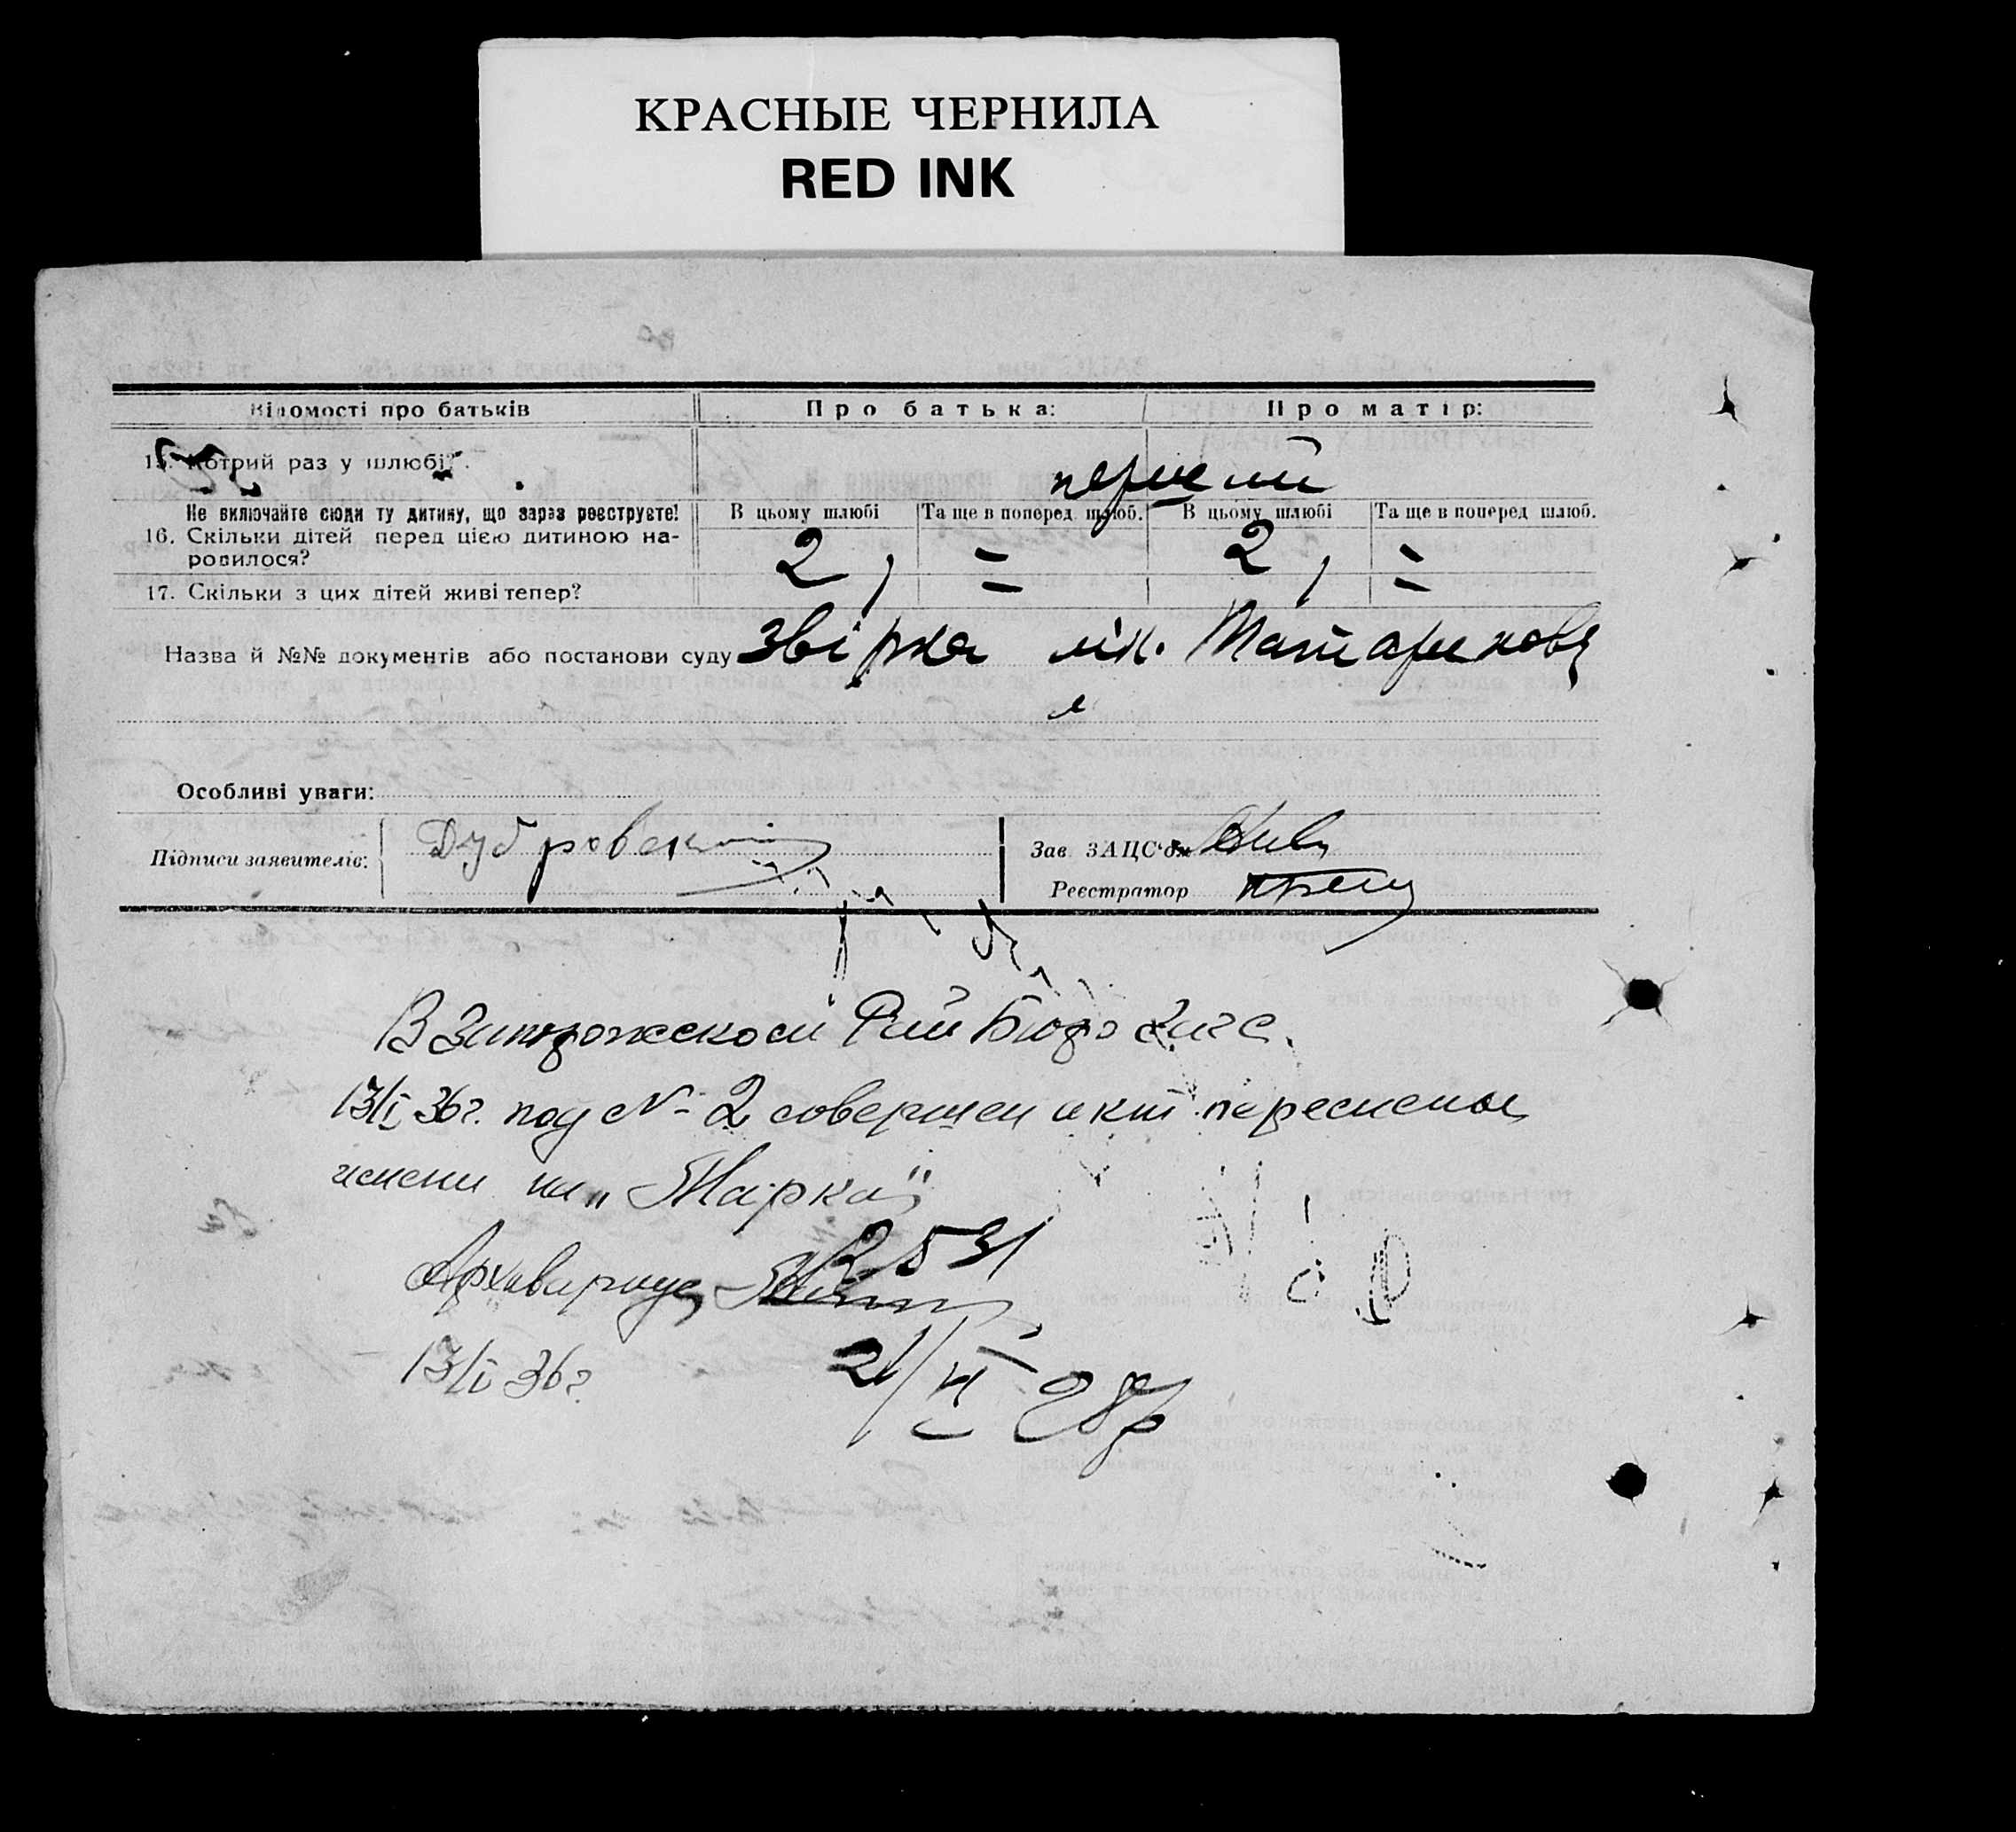 КРАСНЫЕ ЧЕРНИЛА
RED INK
Відомості про батьків Про батька: Про матір:
15. Котрий раз у шлюбі? перший
Не включайте сюди ту дитину, що зараз реєструєте! В цьому шлюбі Та ще в поперед. шлюб. В цьому шлюбі Та ще в поперед шлюб.
16. Скільки дітей перед цією дитиною на-
родилося? 2, = 2, =
17. Скільки з цих дітей живі тепер?
Назва й №№ документів або постанови суду звірка лік.
Особливі уваги:
Підписи заявителів: Дубровский Зав ЗАЦС'ом
Реєстратор
В Запорожской Рай Бюро Загс.
13/I 36 г. под № 2 совершен акт перемены
имени на „Марка"
2531
Архивариус
13/I 36 г.
21/VI 28 р